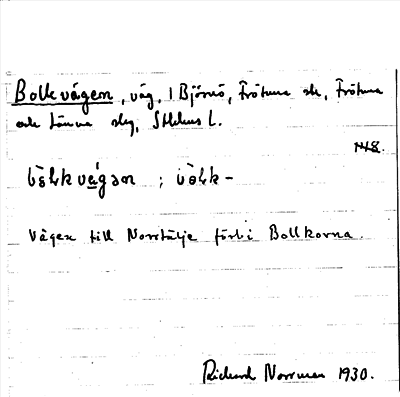 Bolkvägen, väg, i Björnö, Frötuna sn, Frötuna
och Länna skg, Sthlms l.
148.
Vägen till Norrtälje förbi Bollkorna.
Richard Norrman 1930.